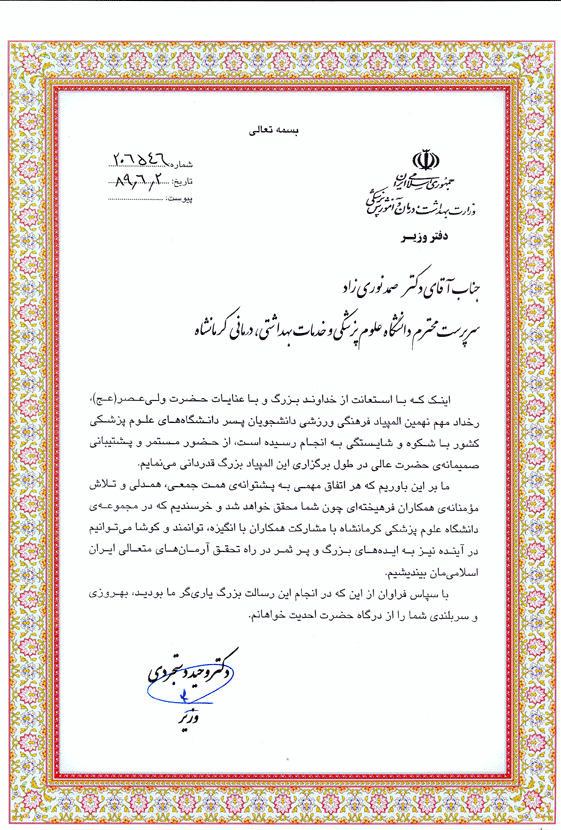 بسمه تعالی
جمهوری اسلامی ایران
وزارت بهداشت، درمان و آموزش پزشکی
دفتر وزیر
شماره: ۲۰۶۵۴۶
تاریخ: ۸۹,۶,۲
پیوست:
جناب آقای دکتر صمد نوری زاد
سرپرست محترم دانشگاه علوم پزشکی و خدمات بهداشتی، درمانی کرمانشاه
اینک که با استعانت از خداوند بزرگ و با عنایات حضرت ولی‌عصر(عج)،
رخداد مهم نهمین المپیاد فرهنگی ورزشی دانشجویان پسر دانشگاه‌های علوم پزشکی
کشور با شکوه و شایستگی به انجام رسیده است، از حضور مستمر و پشتیبانی
صمیمانه‌ی حضرت عالی در طول برگزاری این المپیاد بزرگ قدردانی می‌نمایم.
ما بر این باوریم که هر اتفاق مهمی به پشتوانه‌ی همت جمعی، همدلی و تلاش
مؤمنانه‌ی همکاران فرهیخته‌ای چون شما محقق خواهد شد و خرسندیم که در مجموعه‌ی
دانشگاه علوم پزشکی کرمانشاه با مشارکت همکاران با انگیزه، توانمند و کوشا می‌توانیم
در آینده نیز به ایده‌های بزرگ و پر ثمر در راه تحقق آرمان‌های متعالی ایران
اسلامی‌مان بیندیشیم.
با سپاس فراوان از این که در انجام این رسالت بزرگ یاری‌گر ما بودید، بهروزی
و سربلندی شما را از درگاه حضرت احدیت خواهانم.
دکتر وحید دستجردی
وزیر